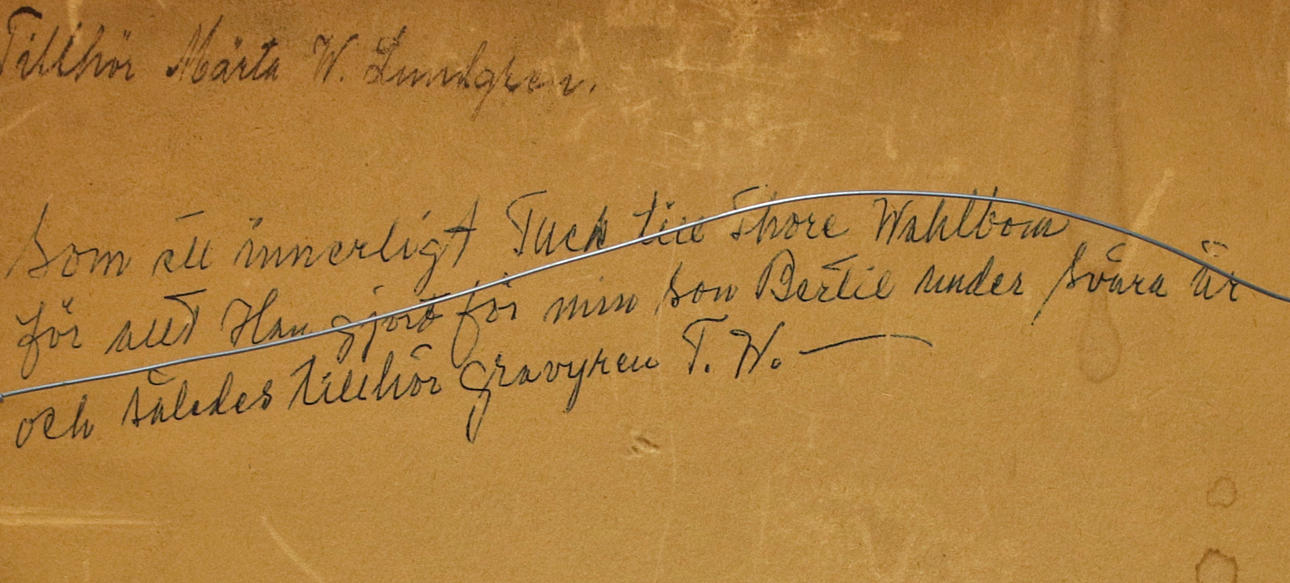 Tillhör Märta W. Lundgren.
Som ett innerligt Tack till Thore Wahlbom
för allt Han gjort för min son Bertil under svåra år
och således tillhör gravyren T. W. —